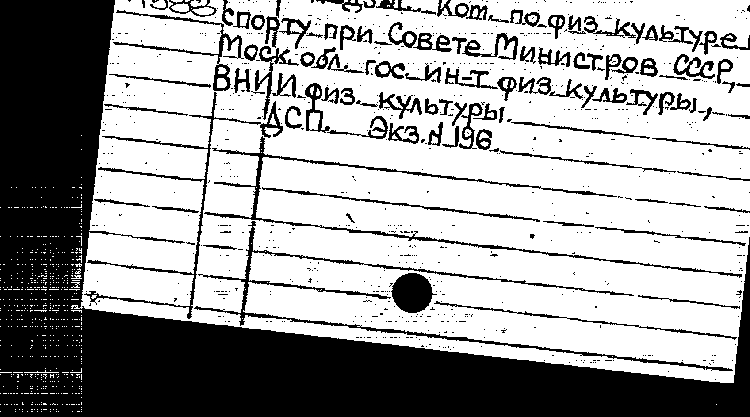 Ком. по физ. культуре и
спорту при Совете Министров СССР,
Моск. обл. гос. ин-т физ. культуры,
ВНИИ физ. культуры.
ДСП. Экз. N 196.